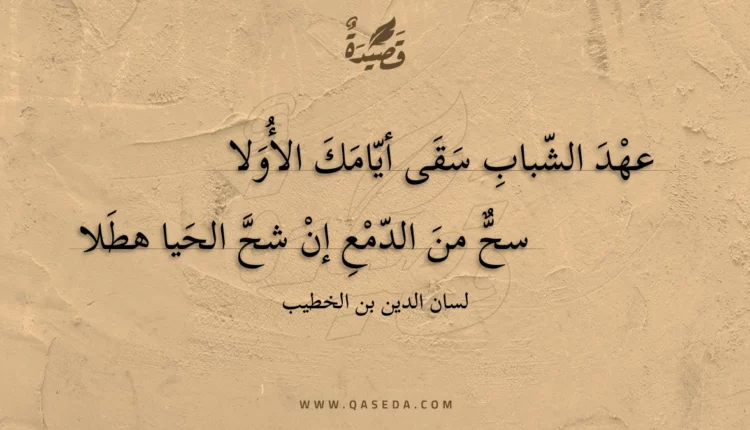 قَصِيدَةٌ
عهْدَ الشّبابِ سَقَى أيّامَكَ الأُوَلا
سحٌّ منَ الدّمْعِ إنْ شحَّ الحَيا هطَلا
لسان الدين بن الخطيب
WWW.QASEDA.COM